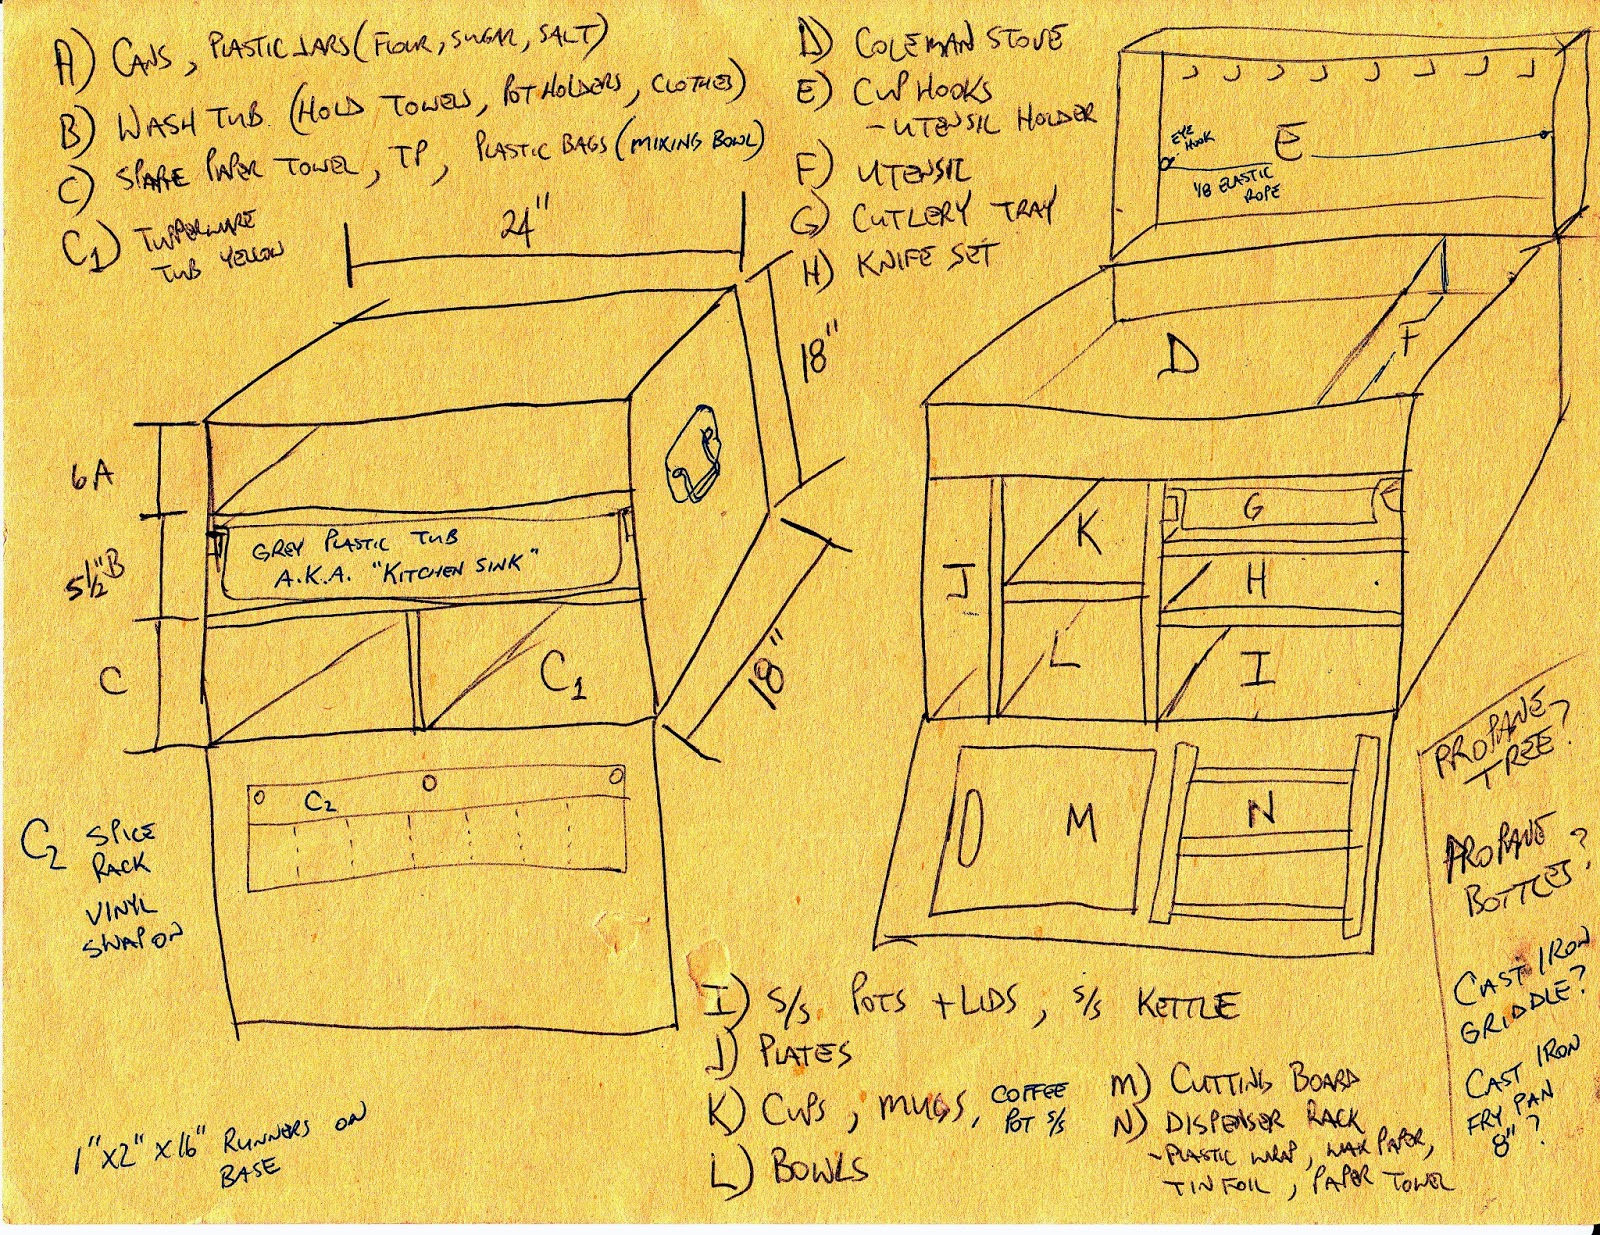 A) CANS, PLASTIC JARS (FLOUR, SUGAR, SALT)
B) WASH TUB (HOLD TOWELS, POT HOLDERS, CLOTHES)
C) SPARE PAPER TOWEL, TP, PLASTIC BAGS (MIXING BOWL)
C1) TUPPERWARE
TUB YELLOW
D) COLEMAN STOVE
E) CUP HOOKS
- UTENSIL HOLDER
F) UTENSIL
G) CUTLERY TRAY
H) KNIFE SET
EYE
HOOK
E
1/8 ELASTIC
ROPE
24"
18"
18"
6A
5 1/2" B
C
GREY PLASTIC TUB
A.K.A. "KITCHEN SINK"
C1
C2
C2 SPICE
RACK
VINYL
SWAP ON
D
F
J
K
L
G
H
I
M
N
PROPANE
TREE?
PROPANE
BOTTLES?
CAST IRON
GRIDDLE?
CAST IRON
FRY PAN
8"?
I) S/S POTS + LIDS, S/S KETTLE
J) PLATES
K) CUPS, MUGS, COFFEE
POT S/S
L) BOWLS
M) CUTTING BOARD
N) DISPENSER RACK
- PLASTIC WRAP, WAX PAPER,
TIN FOIL, PAPER TOWEL
1"X2"X16" RUNNERS ON
BASE